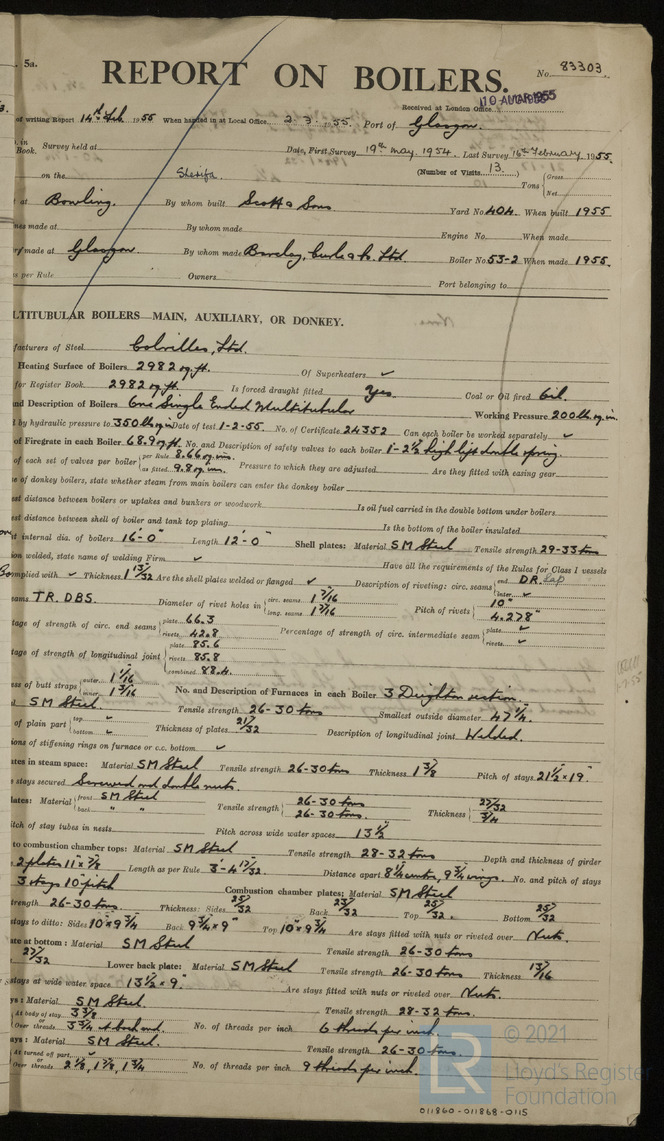 5a.
REPORT ON BOILERS.
No. 83303
Received at London Office
of writing Report 14th Feb 1955 When handed in at Local Office 2. 3. 1955. Port of Glasgow.
Book. Survey held at Date, First Survey 19th May, 1954. Last Survey 16th February, 1955.
on the Sherifa. (Number of Visits 13.) Tons { Gross Net
at Bowling. By whom built Scott & Sons Yard No. 404. When built 1955
made at By whom made Engine No. When made
made at Glasgow By whom made Barclay, Curle & Co. Ltd. Boiler No. 53-2 When made 1955.
as per Rule Owners Port belonging to
LTITUBULAR BOILERS—MAIN, AUXILIARY, OR DONKEY.
facturers of Steel Colvilles, Ltd.
Heating Surface of Boilers 2982 sq. ft. Of Superheaters ✓
for Register Book. 2982 sq. ft. Is forced draught fitted Yes Coal or Oil fired Oil.
nd Description of Boilers One Single Ended Multitubular Working Pressure 200 lbs sq. in.
by hydraulic pressure to 350 lbs sq. in. Date of test 1-2-55. No. of Certificate 24352 Can each boiler be worked separately ✓
of Firegrate in each Boiler 68.9 sq. ft. No. and Description of safety valves to each boiler 1-2½ high lift double spring.
of each set of valves per boiler { per Rule 8.66 sq. ins. as fitted 9.8 sq. ins. Pressure to which they are adjusted Are they fitted with easing gear
of donkey boilers, state whether steam from main boilers can enter the donkey boiler
est distance between boilers or uptakes and bunkers or woodwork Is oil fuel carried in the double bottom under boilers
est distance between shell of boiler and tank top plating Is the bottom of the boiler insulated
t internal dia. of boilers 16'-0" Length 12'-0" Shell plates: Material SM Steel Tensile strength 29-33 tons
on welded, state name of welding Firm ✓ Have all the requirements of the Rules for Class I vessels
omplied with ✓ Thickness 1 13/32 Are the shell plates welded or flanged ✓ Description of riveting: circ. seams { end DR. Lap inter. ✓
eams TR. DBS. Diameter of rivet holes in { circ. seams 1 7/16 long. seams 1 7/16 Pitch of rivets { 10" 4.278"
tage of strength of circ. end seams { plate 66.3 rivets 42.8 Percentage of strength of circ. intermediate seam { plate ✓ rivets ✓
tage of strength of longitudinal joint { plate 85.6 rivets 85.8 combined 88.4.
ess of butt straps { outer 1 1/16 inner 1 3/16 No. and Description of Furnaces in each Boiler 3 Deighton section.
SM Steel. Tensile strength 26-30 tons Smallest outside diameter 47¼.
of plain part { top ✓ bottom ✓ Thickness of plates 21/32 Description of longitudinal joint Welded.
ions of stiffening rings on furnace or c.c. bottom ✓
ates in steam space: Material SM Steel Tensile strength 26-30 tons Thickness 1 3/8 Pitch of stays 21½ × 19"
stays secured Screwed and double nuts.
lates: Material { front SM Steel back " " Tensile strength { 26-30 tons 26-30 tons. Thickness { 27/32 3/4
itch of stay tubes in nests Pitch across wide water spaces 13½
to combustion chamber tops: Material SM Steel Tensile strength 28-32 tons Depth and thickness of girder
2 plates 11" × 7/8 Length as per Rule 3'-4 17/32. Distance apart 8¼ centre, 9¾ wings. No. and pitch of stays
3 stays 10" pitch Combustion chamber plates: Material SM Steel
trength 26-30 tons Thickness: Sides 25/32 Back 23/32 Top 25/32. Bottom 25/32
stays to ditto: Sides 10" × 9¾ Back 9¾ × 9" Top 10" × 9¾ Are stays fitted with nuts or riveted over Nuts.
ate at bottom: Material SM Steel Tensile strength 26-30 tons
27/32 Lower back plate: Material SM Steel Tensile strength 26-30 tons Thickness 13/16
stays at wide water space 13½ × 9" Are stays fitted with nuts or riveted over Nuts.
ys: Material SM Steel. Tensile strength 28-32 tons.
At body of stay 3 3/8
Over threads 3¾ at back end. No. of threads per inch 6 threads per inch.
ays: Material SM Steel. Tensile strength 26-30 tons.
At turned off part ✓
Over threads 2 1/8, 1 7/8, 1¾ No. of threads per inch 9 threads per inch.
© 2021
LR
Lloyd's Register
Foundation
011860-011868-0115